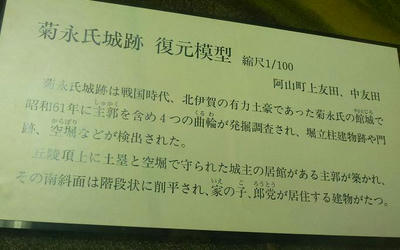 菊永氏城跡 復元模型 縮尺1/100
阿山町上友田、中友田
菊永氏城跡は戦国時代、北伊賀の有力土豪であった菊永氏の館城で
昭和61年に主郭を含め4つの曲輪が発掘調査され、掘立柱建物跡や門
跡、空堀などが検出された。
丘陵頂上に土塁と空堀で守られた城主の居館がある主郭が築かれ、
その南斜面は階段状に削平され、家の子、郎党が居住する建物がたつ。